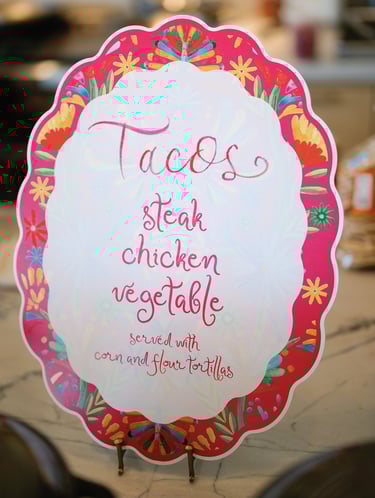 Tacos
steak
chicken
vegetable
served with
corn and flour tortillas